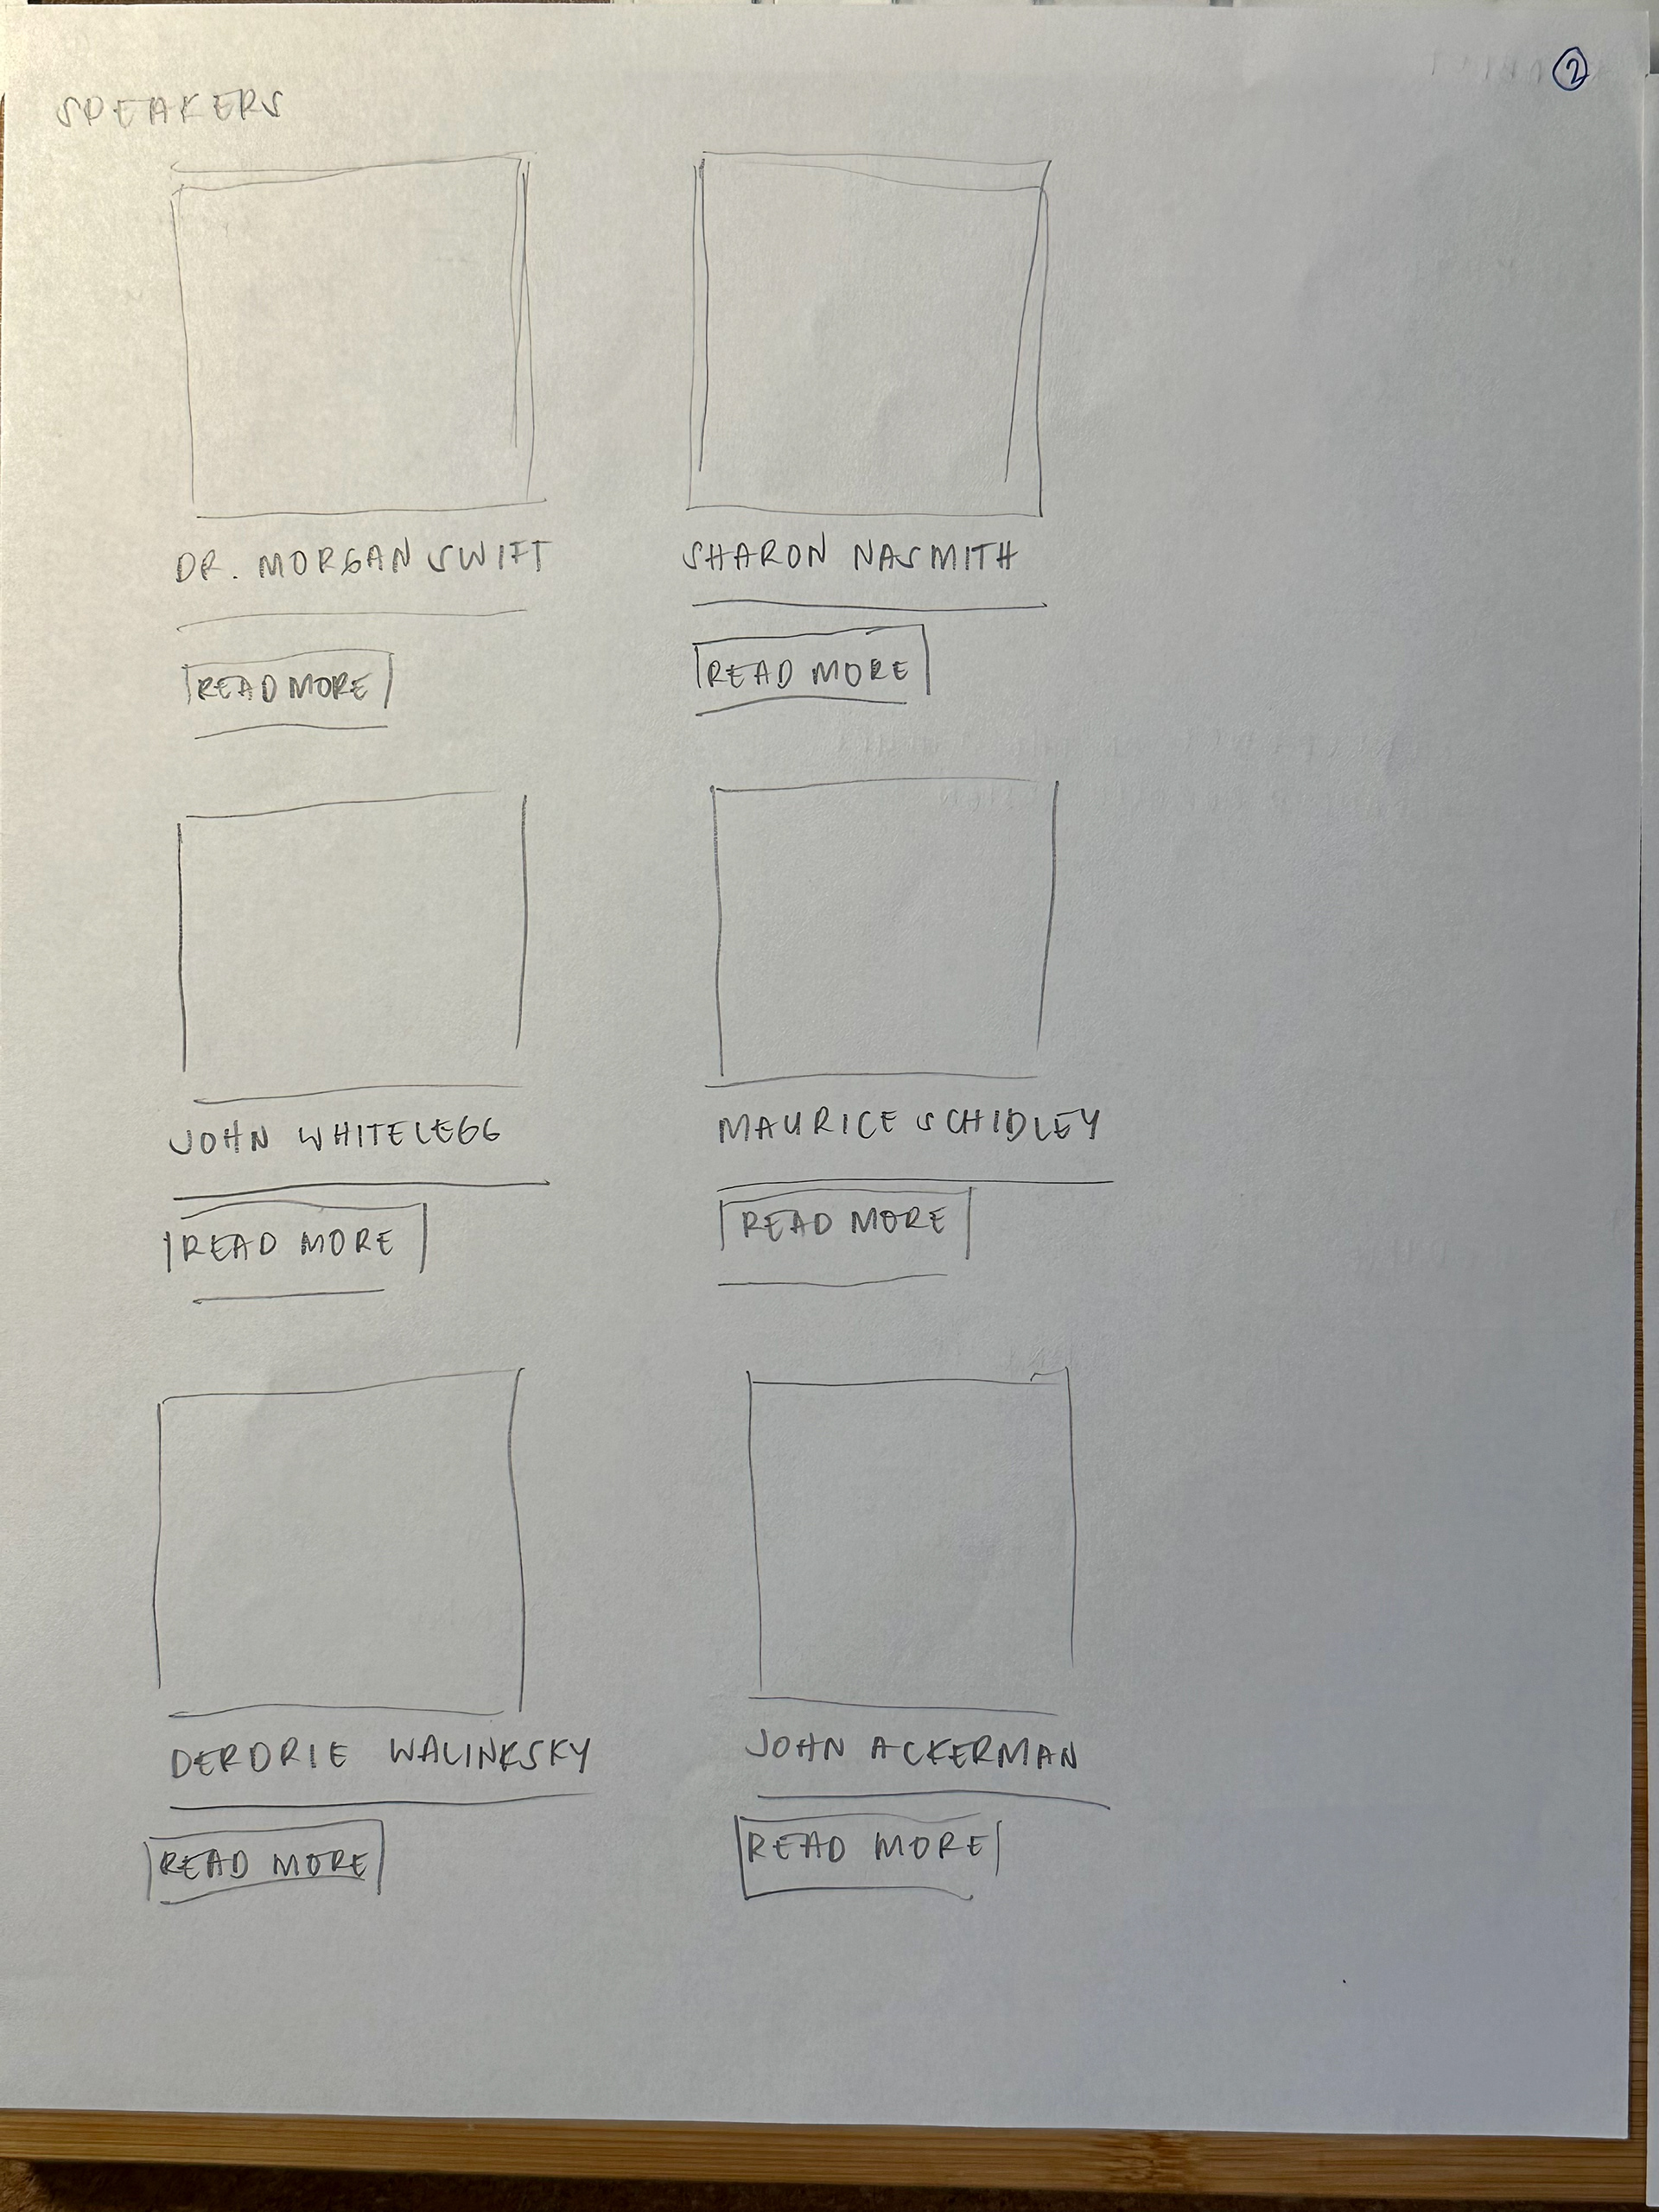 2
SPEAKERS
DR. MORGAN SWIFT
SHARON NASMITH
READ MORE
READ MORE
JOHN WHITELEGG
MAURICE SCHIDLEY
READ MORE
READ MORE
DERDRIE WALINKSKY
JOHN ACKERMAN
READ MORE
READ MORE